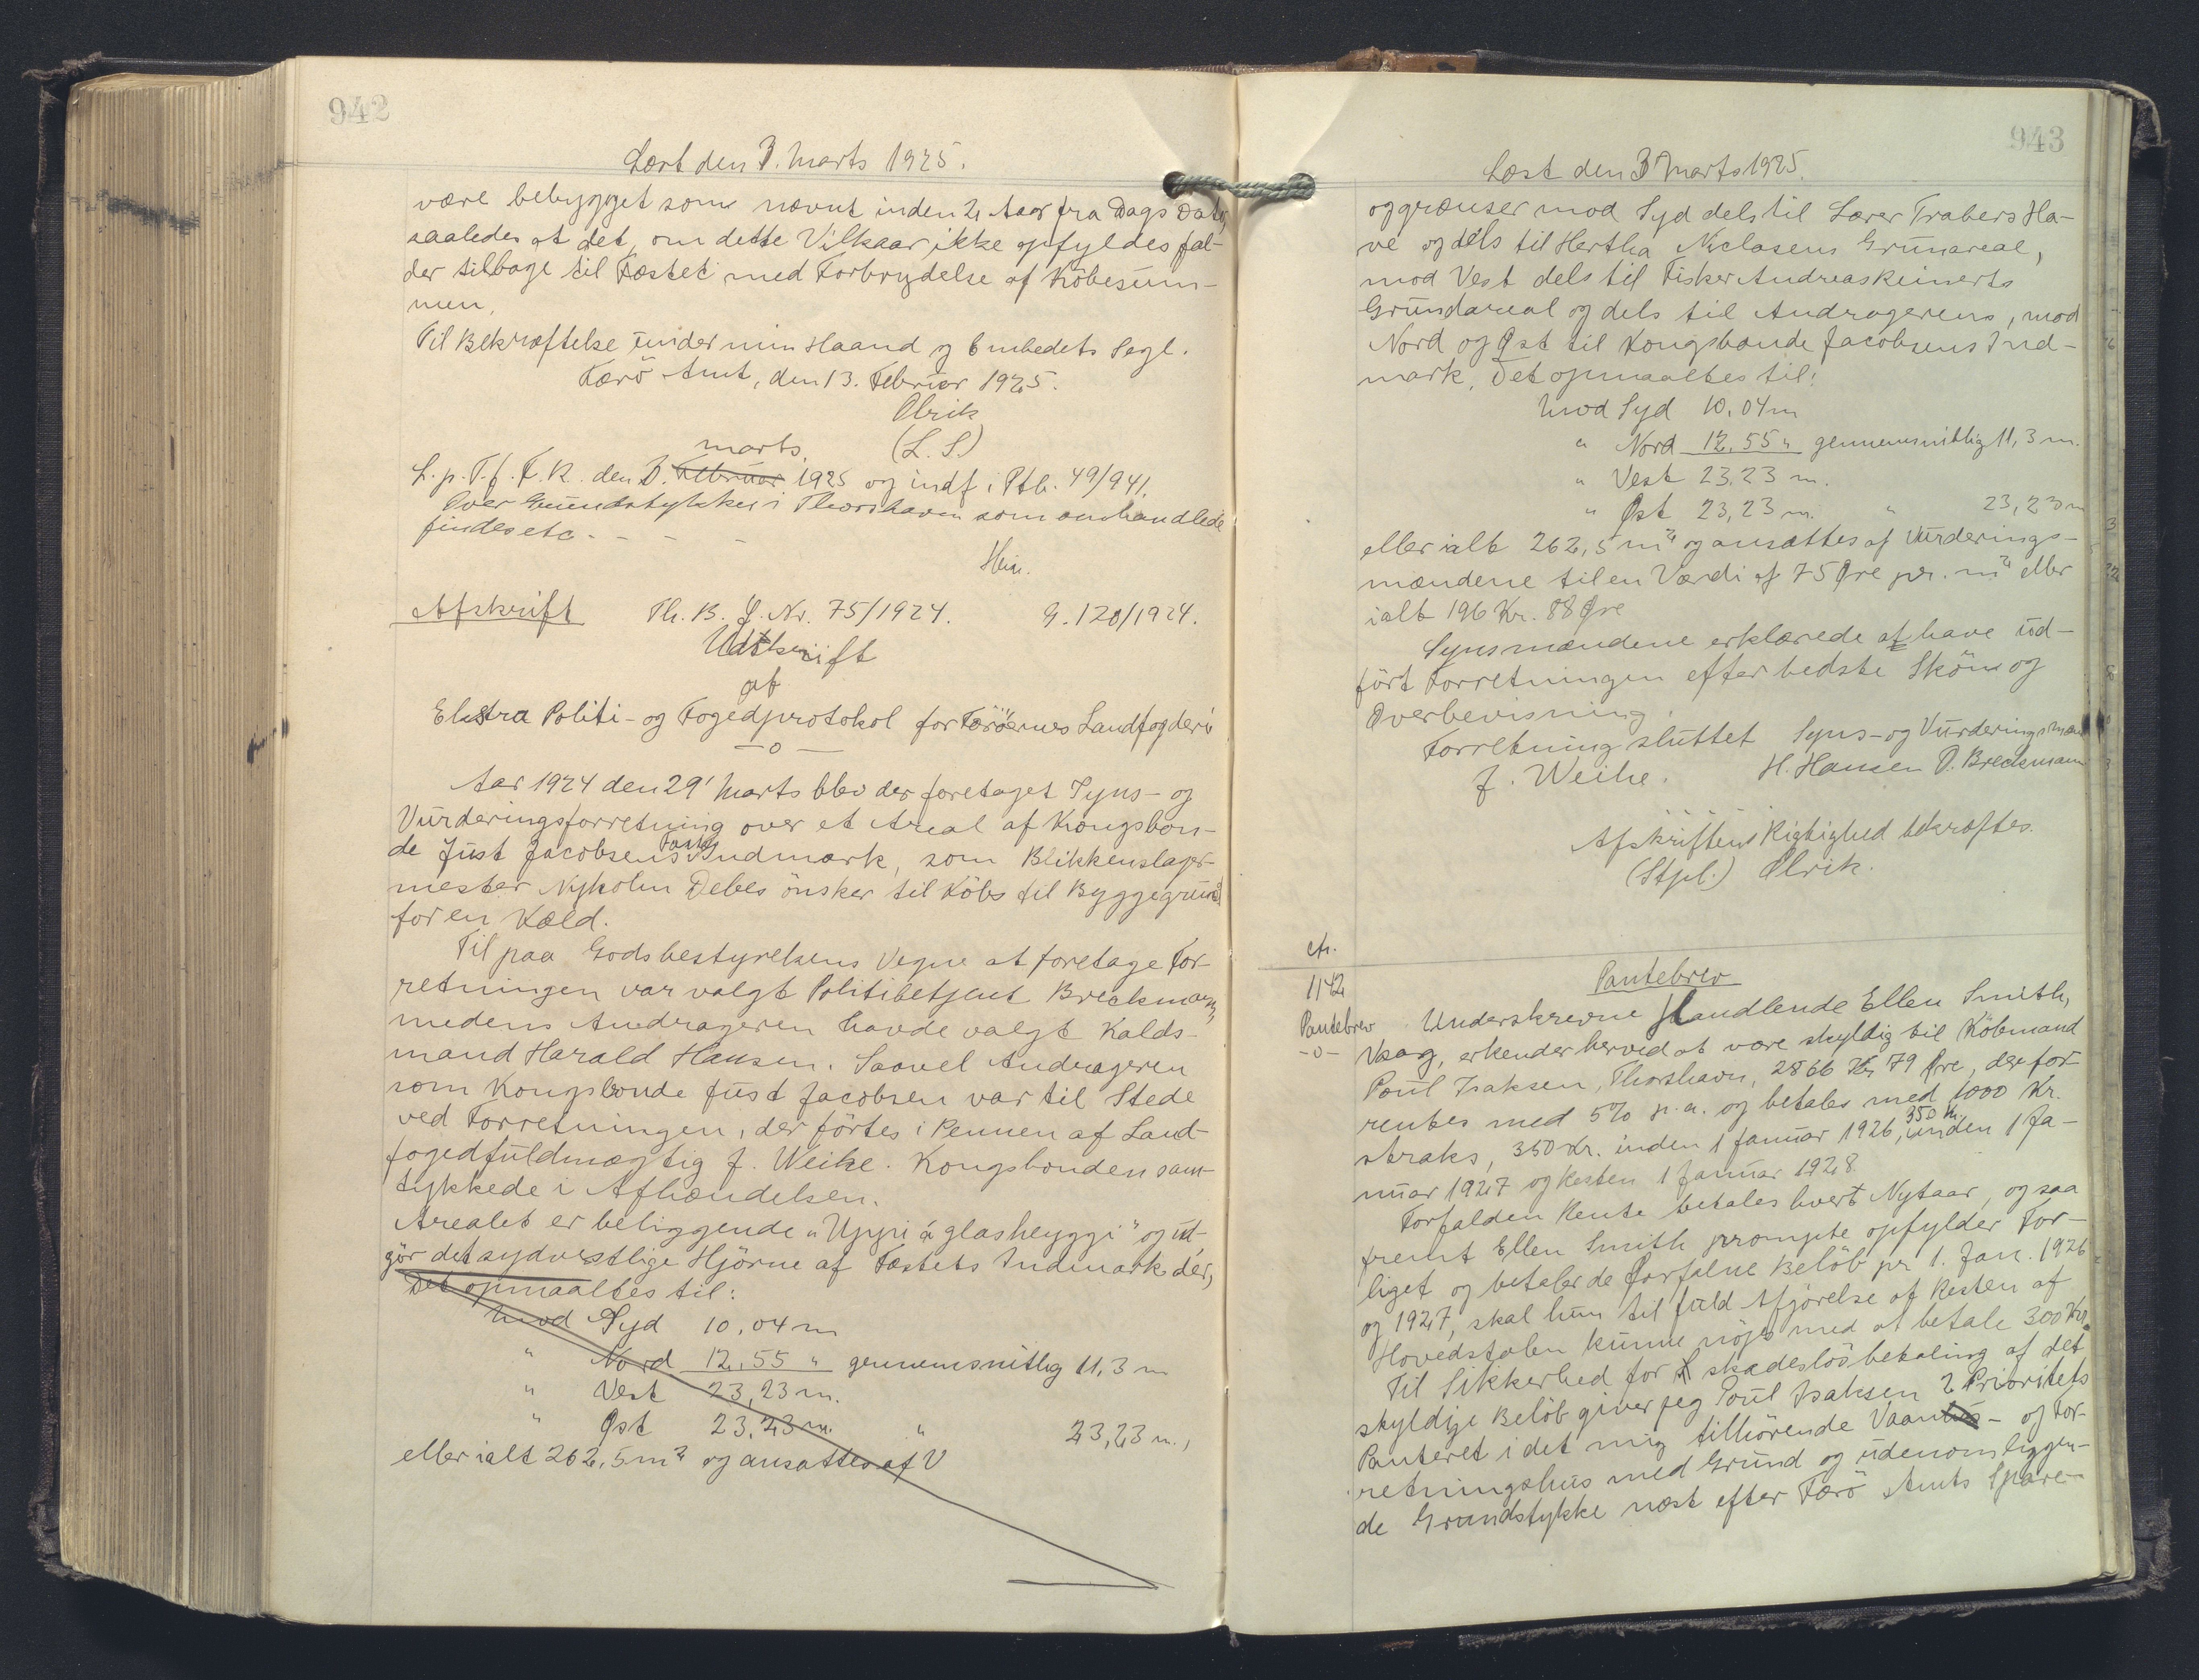 942
Læst den 3. Marts 1925.
være bebygget som nævnt inden 2 Aar fra Dags Dato,
saaledes at det, om dette Vilkaar ikke opfyldes fal-
der tilbage til Fæstet med Forbrydelse af Köbesum-
men.
Til Bekræftelse under min Haand og Embedets Segl.
Færö Amt, den 13. Februar 1925.
Olrik
(L. S.)
L. p. T. f. F. R. den 3. Februar Marts 1925 og indf i Ptb. 49/941.
Over Grundstykket i Thorshavn som omhandlede
findes etc - - - -
Hein.
Afskrift Th. B. J. Nr. 75/1924. G. 120/1924.
Udskrift
af
Ekstra Politi- og Fogedprotokol for Færöernes Landfogderi
-o-
Aar 1924 den 29' Marts blev der foretaget Syns- og
Vurderingsforretning over et Areal af Kongsbon-
de Just Jacobsens Indmark, som Blikkenslager-
mester Nykolin Debes önsker til Köbs til Byggegrund
for en Kæld.
Til paa Godsbestyrelsens Vegne at foretage For-
retningen var valgt Politibetjent Breckmann,
medens Andrageren havde valgt Kalds-
mand Harald Hansen. Saavel Andrageren
som Kongsbonde Just Jacobsen var til Stede
ved Forretningen, der förtes i Pennen af Land-
fogedfuldmægtig J. Weihe. Kongsbonden sam-
tykkede i Afhændelsen.
Arealet er beliggende "Uppi á glasheyggi" og ud-
gör det sydvestlige Hjörne af Fæstets Indmark dér,
Det opmaaltes til:
Mod Syd 10,04 m
" Nord 12,55 " gennemsnitlig 11,3 m
" Vest 23,23 m.
" Øst 23,23 m. " 23,23 m.,
eller ialt 262,5 m² og ansattes af V
943
Læst den 3 Marts 1925.
og grænser mod Syd dels til Lærer Trabers Ha-
ve og dels til Hertha Niclasens Grunareal,
mod Vest dels til Fisker Andreas Reinerts
Grundareal og dels til Andragerens, mod
Nord og Øst til Kongsbonde Jacobsens Ind-
mark. Det opmaaltes til:
Mod Syd 10,04 m
" Nord 12,55 " gennemsnitlig 11,3 m.
" Vest 23,23 m.
" Øst 23,23 m. " 23,23 m
eller ialt 262,5 m² og ansattes af Vurderings-
mændene til en Værdi af 75 Øre pr. m² eller
ialt 196 Kr. 88 Øre
Synsmændene erklærede at have ud-
fört Forretningen efter bedste Skön og
Overbevisning.
Forretning sluttet Syns- og Vurderingsmæn
J. Weihe. H. Hansen P. Breckmann
Afskriftens Rigtighed bekræftes.
(Stpl.) Olrik.
1142
Pantebrev
-o-
Pantebrev
Underskrevne Handlende Ellen Smith,
Vaag, erkender herved at være skyldig til Köbmand
Poul Isaksen, Thorshavn, 2866 Kr 79 Øre, der for-
rentes med 5% p. a. og betales med 1000 Kr.
straks, 350 Kr. inden 1 Januar 1926, 350 Kr. inden 1 Ja-
nuar 1927 og Resten 1 Januar 1928.
Forfalden Rente betales hvert Nytaar, og saa
fremt Ellen Smith prompte opfylder For-
liget og betaler de forfalne Belöb pr 1. Jan. 1926
og 1927, skal hun til fuld Afgjörelse af Resten af
Hovedstolen kunne nöjes med at betale 300 Kr.
Til Sikkerhed for skadeslös betaling af det
skyldige Belöb giver jeg Poul Isaksen 2 Prioritets
Panteret i det mig tilhörende Vaanhus- og For-
retningshus med Grund og udenomliggen-
de Grundstykke næst efter Færö Amts Spare-